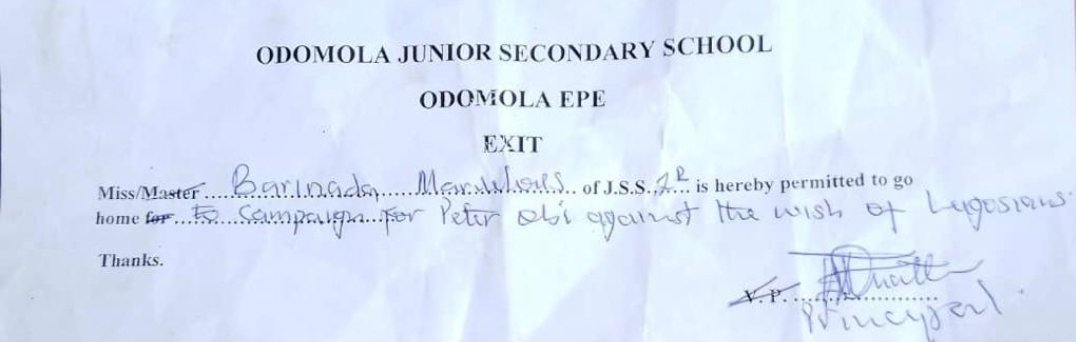 ODOMOLA JUNIOR SECONDARY SCHOOL
ODOMOLA EPE
EXIT
Miss/Master Barinada, of J.S.S. is hereby permitted to go
home for to campaign for Peter Obi against the wish of Lygosians.
Thanks.
V. P.
Principal